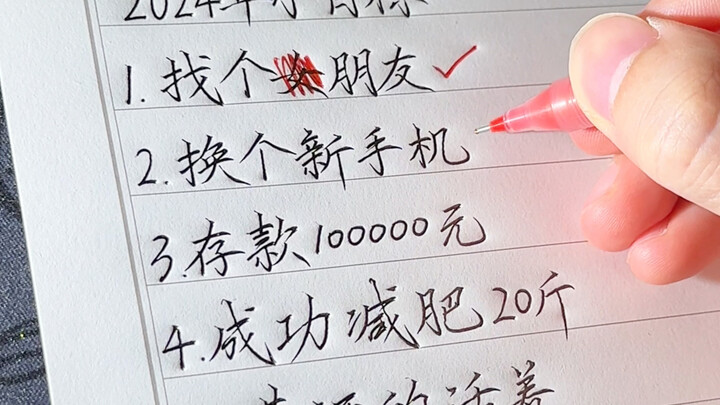 2024年小目标
1.找个女朋友✓
2.换个新手机
3.存款100000元
4.成功减肥20斤